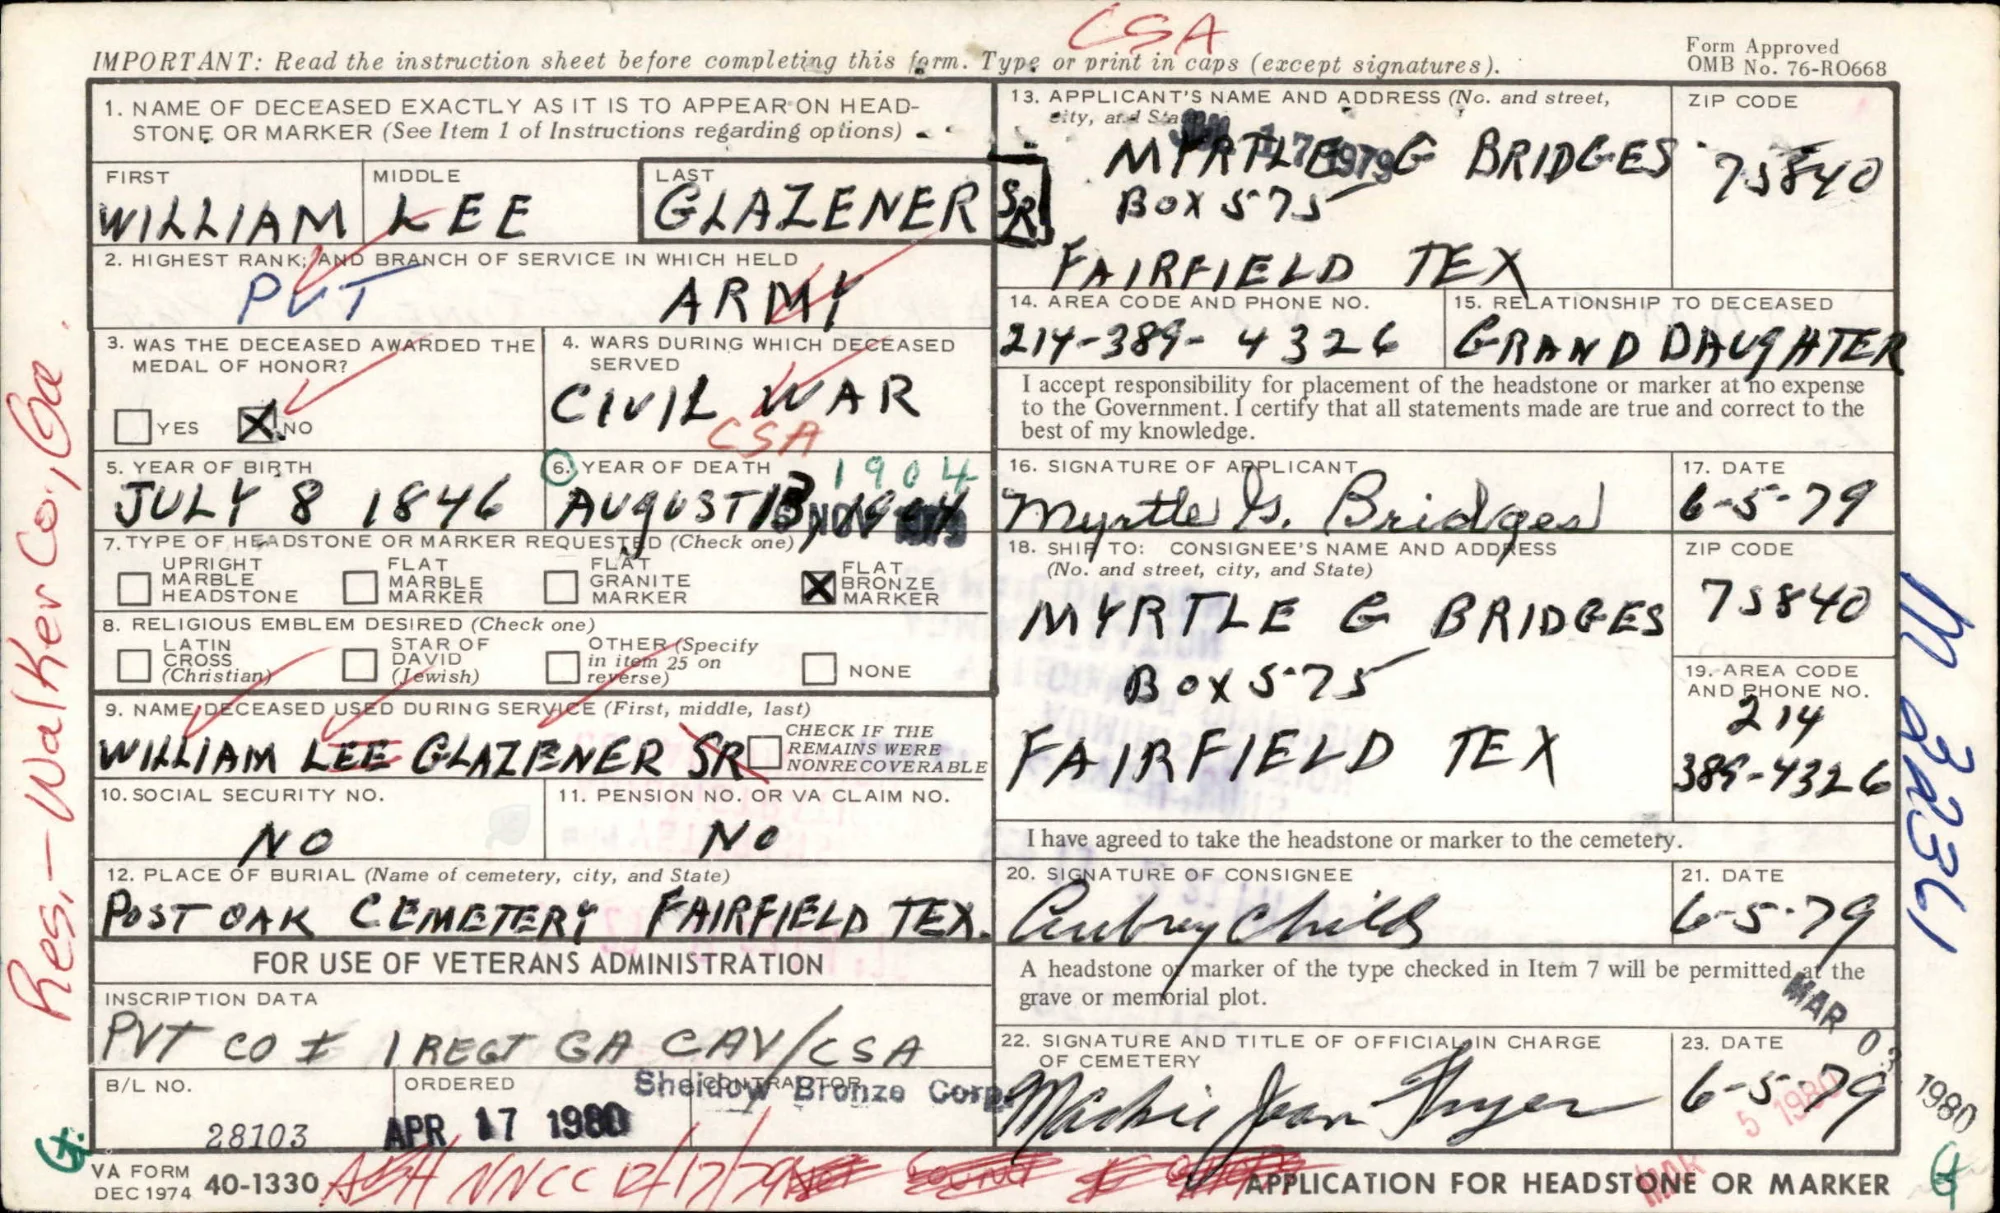 CSA
IMPORTANT: Read the instruction sheet before completing this form. Type or print in caps (except signatures).
Form Approved
OMB No. 76-RO668
1. NAME OF DECEASED EXACTLY AS IT IS TO APPEAR ON HEAD-
STONE OR MARKER (See Item 1 of Instructions regarding options)
FIRST MIDDLE LAST
WILLIAM LEE GLAZENER SR
2. HIGHEST RANK, AND BRANCH OF SERVICE IN WHICH HELD
PVT ARMY
3. WAS THE DECEASED AWARDED THE
MEDAL OF HONOR?
YES X NO
4. WARS DURING WHICH DECEASED
SERVED
CIVIL WAR
CSA
5. YEAR OF BIRTH
JULY 8 1846
6. YEAR OF DEATH 1904
AUGUST 13, 1904
7. TYPE OF HEADSTONE OR MARKER REQUESTED (Check one)
UPRIGHT
MARBLE
HEADSTONE
FLAT
MARBLE
MARKER
FLAT
GRANITE
MARKER
X FLAT
BRONZE
MARKER
8. RELIGIOUS EMBLEM DESIRED (Check one)
LATIN
CROSS
(Christian)
STAR OF
DAVID
(Jewish)
OTHER (Specify
in item 25 on
reverse)
NONE
9. NAME DECEASED USED DURING SERVICE (First, middle, last)
WILLIAM LEE GLAZENER SR
CHECK IF THE
REMAINS WERE
NONRECOVERABLE
10. SOCIAL SECURITY NO.
NO
11. PENSION NO. OR VA CLAIM NO.
NO
12. PLACE OF BURIAL (Name of cemetery, city, and State)
POST OAK CEMETERY FAIRFIELD TEX.
FOR USE OF VETERANS ADMINISTRATION
INSCRIPTION DATA
PVT CO I 1 REGT GA CAV/CSA
B/L NO.
28103
ORDERED
APR 17 1980
CONTRACTOR
Sheidow Bronze Corp.
VA FORM
DEC 1974 40-1330
NNCC 12/17/79
13. APPLICANT'S NAME AND ADDRESS (No. and street,
city, and State)
17 1979
MYRTLE G BRIDGES
BOX 575
FAIRFIELD TEX
ZIP CODE
75840
14. AREA CODE AND PHONE NO.
214-389-4326
15. RELATIONSHIP TO DECEASED
GRAND DAUGHTER
I accept responsibility for placement of the headstone or marker at no expense
to the Government. I certify that all statements made are true and correct to the
best of my knowledge.
16. SIGNATURE OF APPLICANT
Myrtle G. Bridges
17. DATE
6-5-79
18. SHIP TO: CONSIGNEE'S NAME AND ADDRESS
(No. and street, city, and State)
MYRTLE G BRIDGES
BOX 575
FAIRFIELD TEX
ZIP CODE
75840
19. AREA CODE
AND PHONE NO.
214
389-4326
I have agreed to take the headstone or marker to the cemetery.
20. SIGNATURE OF CONSIGNEE
Aubrey Childs
21. DATE
6-5-79
A headstone or marker of the type checked in Item 7 will be permitted at the
grave or memorial plot.
MAR 03 1980
22. SIGNATURE AND TITLE OF OFFICIAL IN CHARGE
OF CEMETERY
Jean Fryer
23. DATE
6-5-79
5 1980
APPLICATION FOR HEADSTONE OR MARKER
Res.—Walker Co., Ga.
M 32361